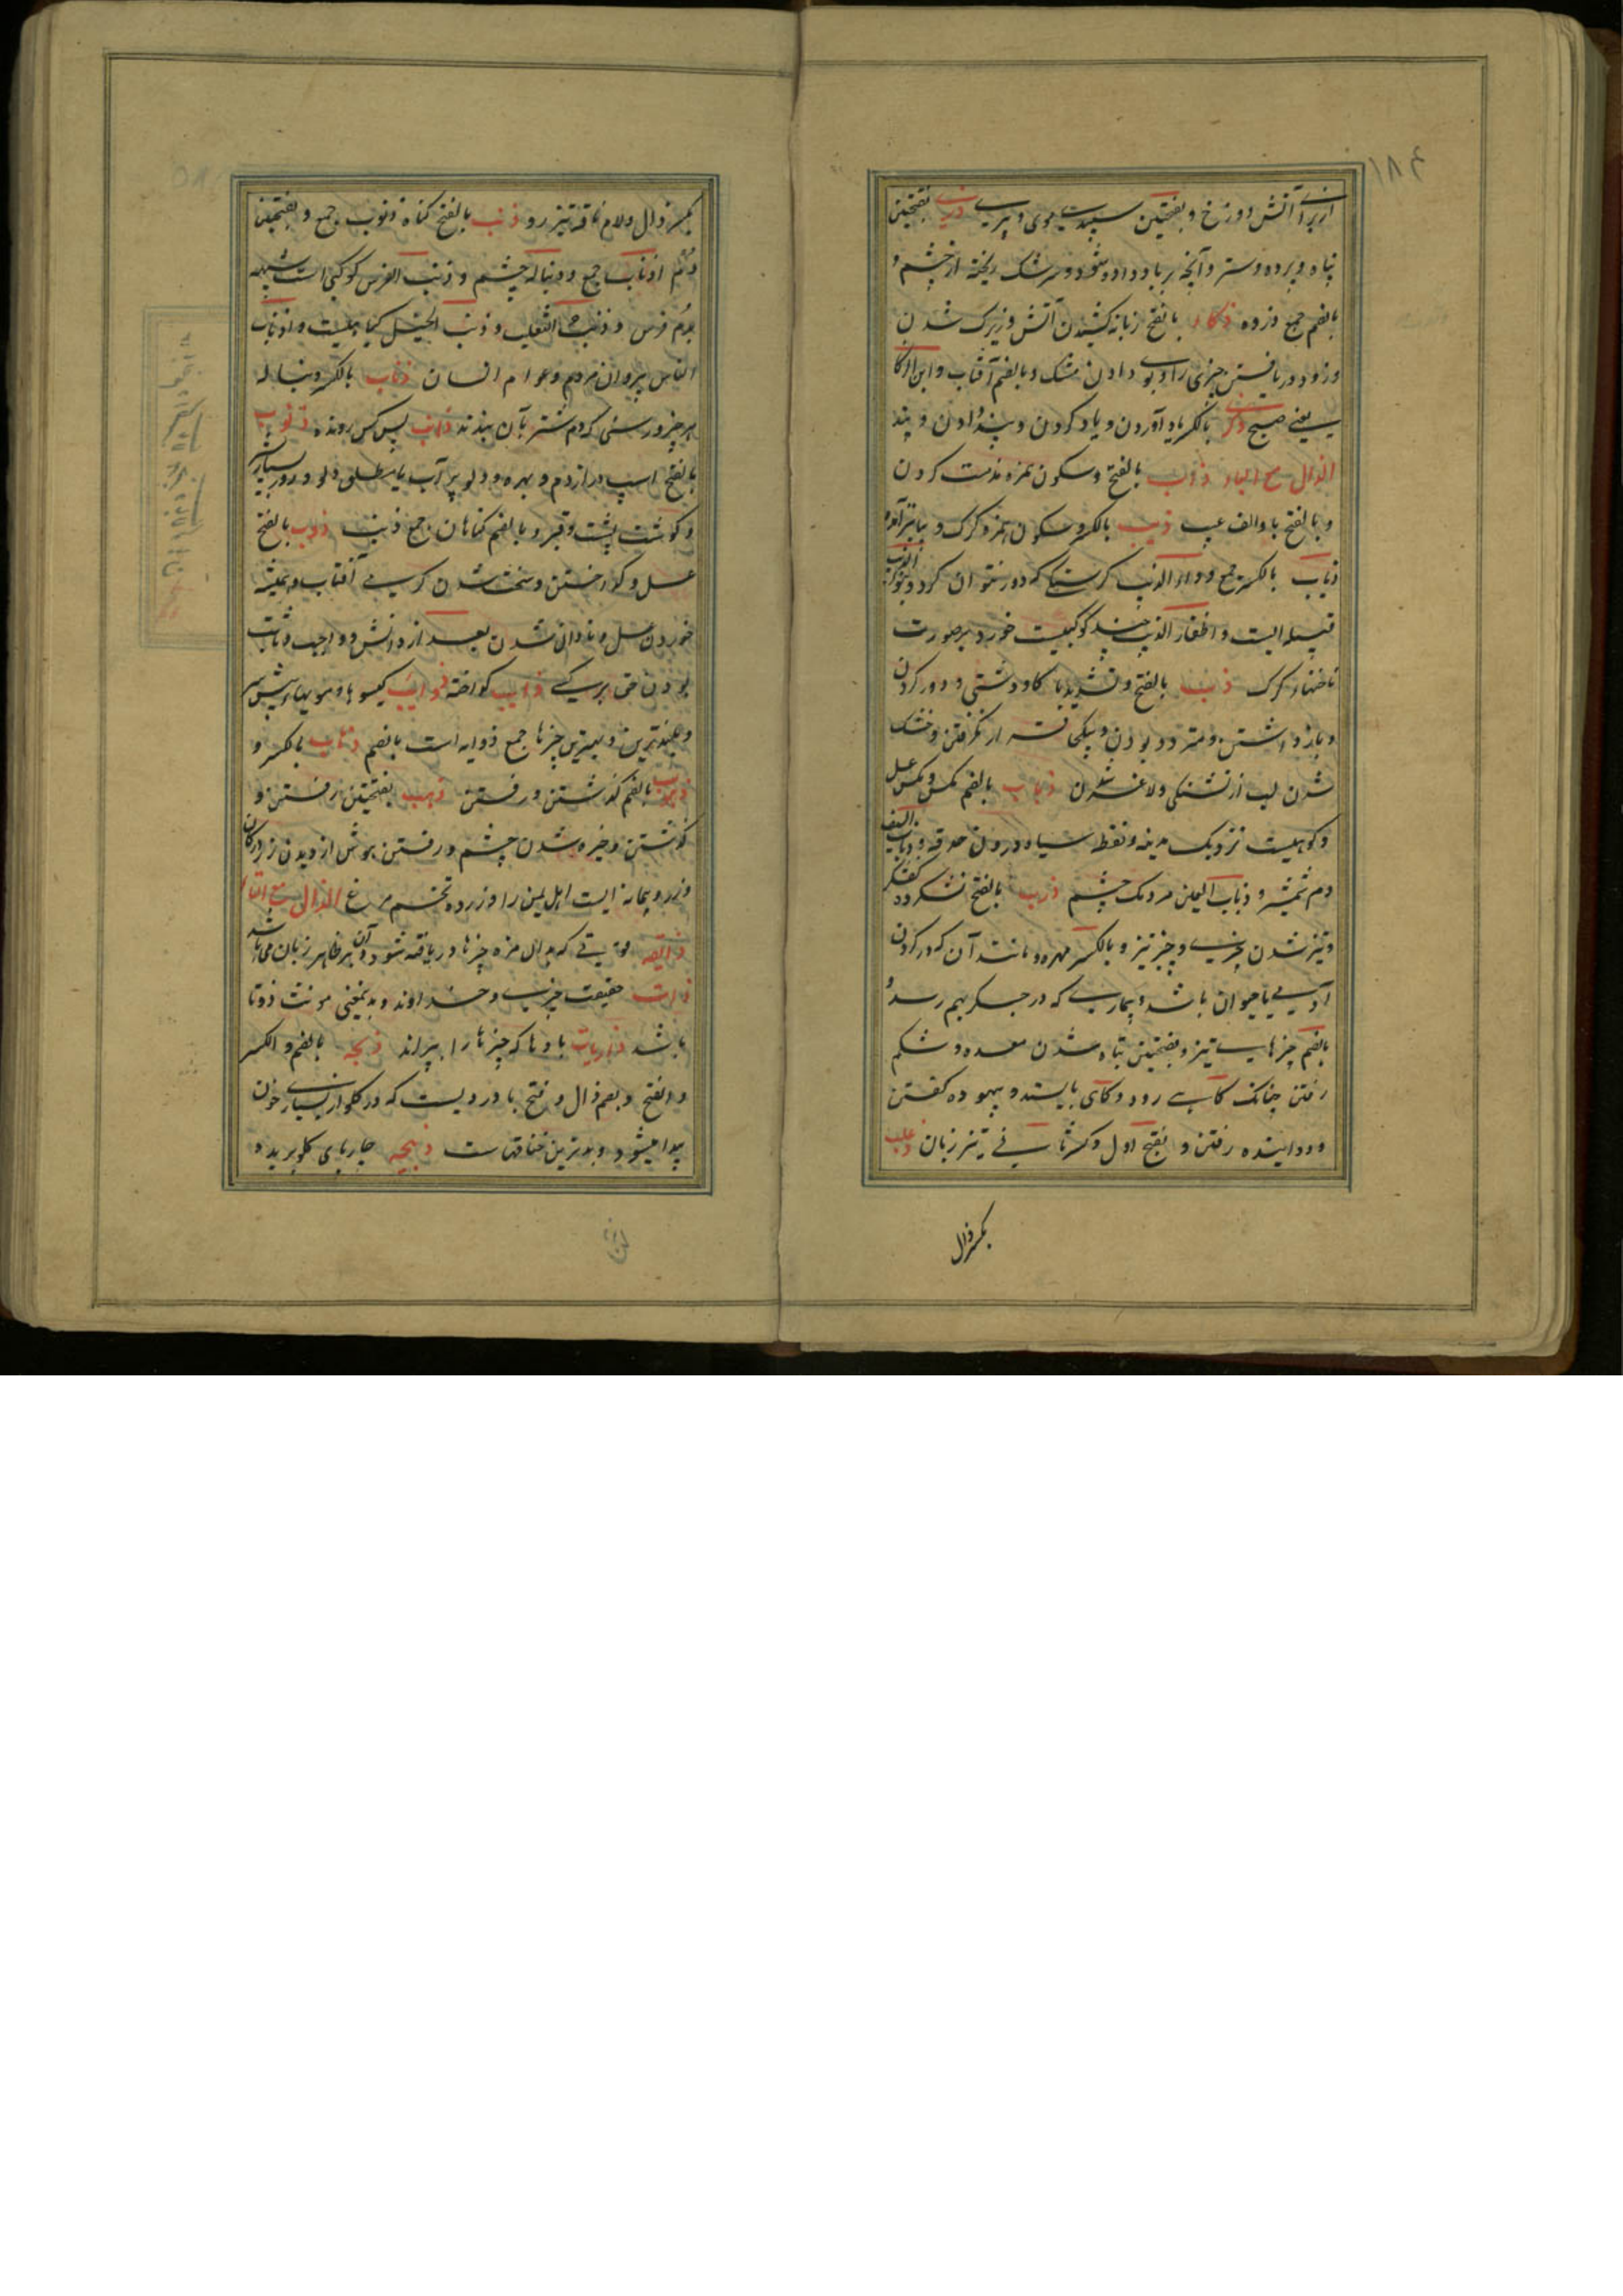 ۱۸۴
از برای آتش دوزخ و بفتحتین سپیدی موی و پیری ذری بفتحتین
پناه و پرده و ستر و آنچه بر باد داده شود و سرشک ریخته از چشم و
بالضم جمع ذروه ذکاء بالفتح زبانه کشیدن آتش و زیرک شدن
و زود دریافتن چیزی را و بوی دادن مشک و بالضم آفتاب و ابن ذکا
یعنی صبح ذکری بالکسر یاد آوردن و یاد کردن و پند دادن و پند
الذال مع الباء ذاب بالفتح و سکون همزه مذمت کردن
و بالفتح با و الف عیب ذیب بالکسر و سکون همزه گرگ و بیا نیز آمده
ذیاب بالکسر جمع و داء الذیب گرسنگی که دور نتوان کرد و ذوبان
قبیله ایست و اظفار الذیب چند کوکبیست خورد بر صورت
ناخنهاء گرگ ذب بالفتح و تشدید با گاو دشتی و دور کردن
و باز داشتن و متردد بودن و یکجا قرار نگرفتن و خشک
شدن لب از تشنگی و لاغر شدن ذباب بالضم مگس و مگس عسل
و کوهیست نزدیک مدینه و نقطه سیاه درون حدقه و ذباب السیف
دم شمشیر و ذباب العین مردمک چشم ذرب بالفتح
و تیز شدن چیزی و چیز تیز و بالکسر مهره و مانند آن که در گردن
آدمی یا حیوان باشد و بیماری که در جگر بهم رسد و
بالضم چیزهای تیز و بفتحتین تباه شدن معده و شکم
رفتن چنانک گاهی رود و گاهی بایستد و بیهوده گفتن
و دوانیده رفتن و بفتح اول و کسر ثانی تیز زبان ذعلب
بکسر ذال
بکسر ذال و لام ناقه تیز رو ذنب بالفتح گناه ذنوب جمع و بفتحتین
دم اذناب جمع و دنباله چشم و ذنب الفرس کوکبی است شبیه
بدم فرس و ذنب الثعلب و ذنب الخیل گیاهیست و اذناب
الناس پیروان مردم و عوام انسان ذناب بالکسر دنباله
هر چیز و رسنی که دم شتر بآن بندند ذانب پس کس رونده ذنوب
بالفتح اسپ دراز دم و بهره و دلو پر آب یا مطلق دلو و روز بسیار شر
و گوشت پشت و قبر و بالضم گناهان جمع ذنب ذوب بالفتح
عسل و گداختن و سخت شدن گرمی آفتاب و همیشه
خوردن عسل و نادان شدن بعد از دانش و واجب و ثابت
بودن حق بر کسی ذایب گداخته ذوایب گیسوها و مویهاء پیش سر
و بلندترین و بهترین چیزها جمع ذوابه است بالضم ذهاب بالکسر و
ذهوب بالضم گذشتن و رفتن ذهب بفتحتین رفتن و
گذشتن و خیره شدن چشم و رفتن هوش از دیدن زر در کان
و زر و پیمانه ایست اهل یمن را و زرده تخم مرغ الذال مع التاء
ذایقه قوتی که بدان مزه چیزها دریافته شود و آن بر ظاهر زبان می باشد
ذات حقیقت چیزی و خداوند و بدینمعنی مونث ذو تا
باشد ذاریات بادها که چیزها را بپراند ذبحه بالضم و الکسر
و الفتح و بضم ذال و فتح با دردیست که در گلو از بسیاری خون
پیدا میشود و بدترین خناقهاست ذبیحه چارپای گلو بریده و